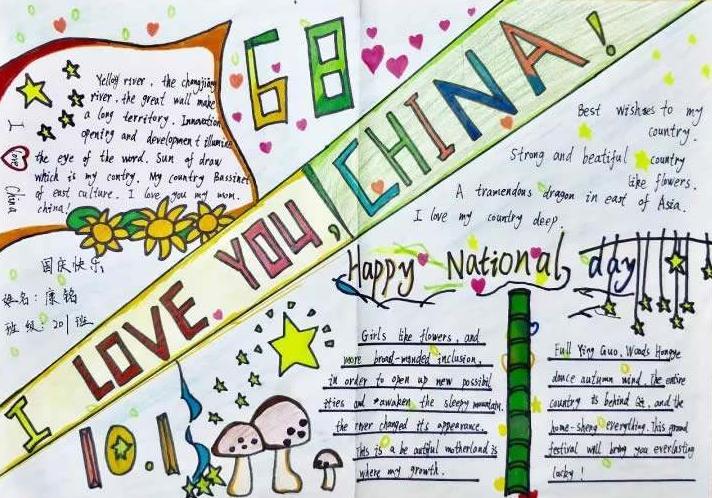 68
I LOVE YOU, CHINA!
Yellow river, the changjiang
river, the great wall make
a long territory. Innovation
opening and development illumine
the eye of the word. Sun of draw
which is my contry. My country Bassinet
of east culture. I love you my mom.
china!
I love China
国庆快乐
姓名：康铭
班级：201班
10.1
Best wishes to my
country.
Strong and beatiful country
like flowers.
A tramendous dragon in east of Asia.
I love my country deep.
Happy National day
Girls like flowers, and
more broad-minded inclusion,
in order to open up new possibil
ities and awaken the sleepy mountain.
the river changed its appearance.
This is a beautiful motherland is
where my growth.
Full Ying Guo, Woods Hongye
dance autumn wind, the entire
country is behind and the
home-sheng everything, this grand
festival will bring you everlasting
lucky!